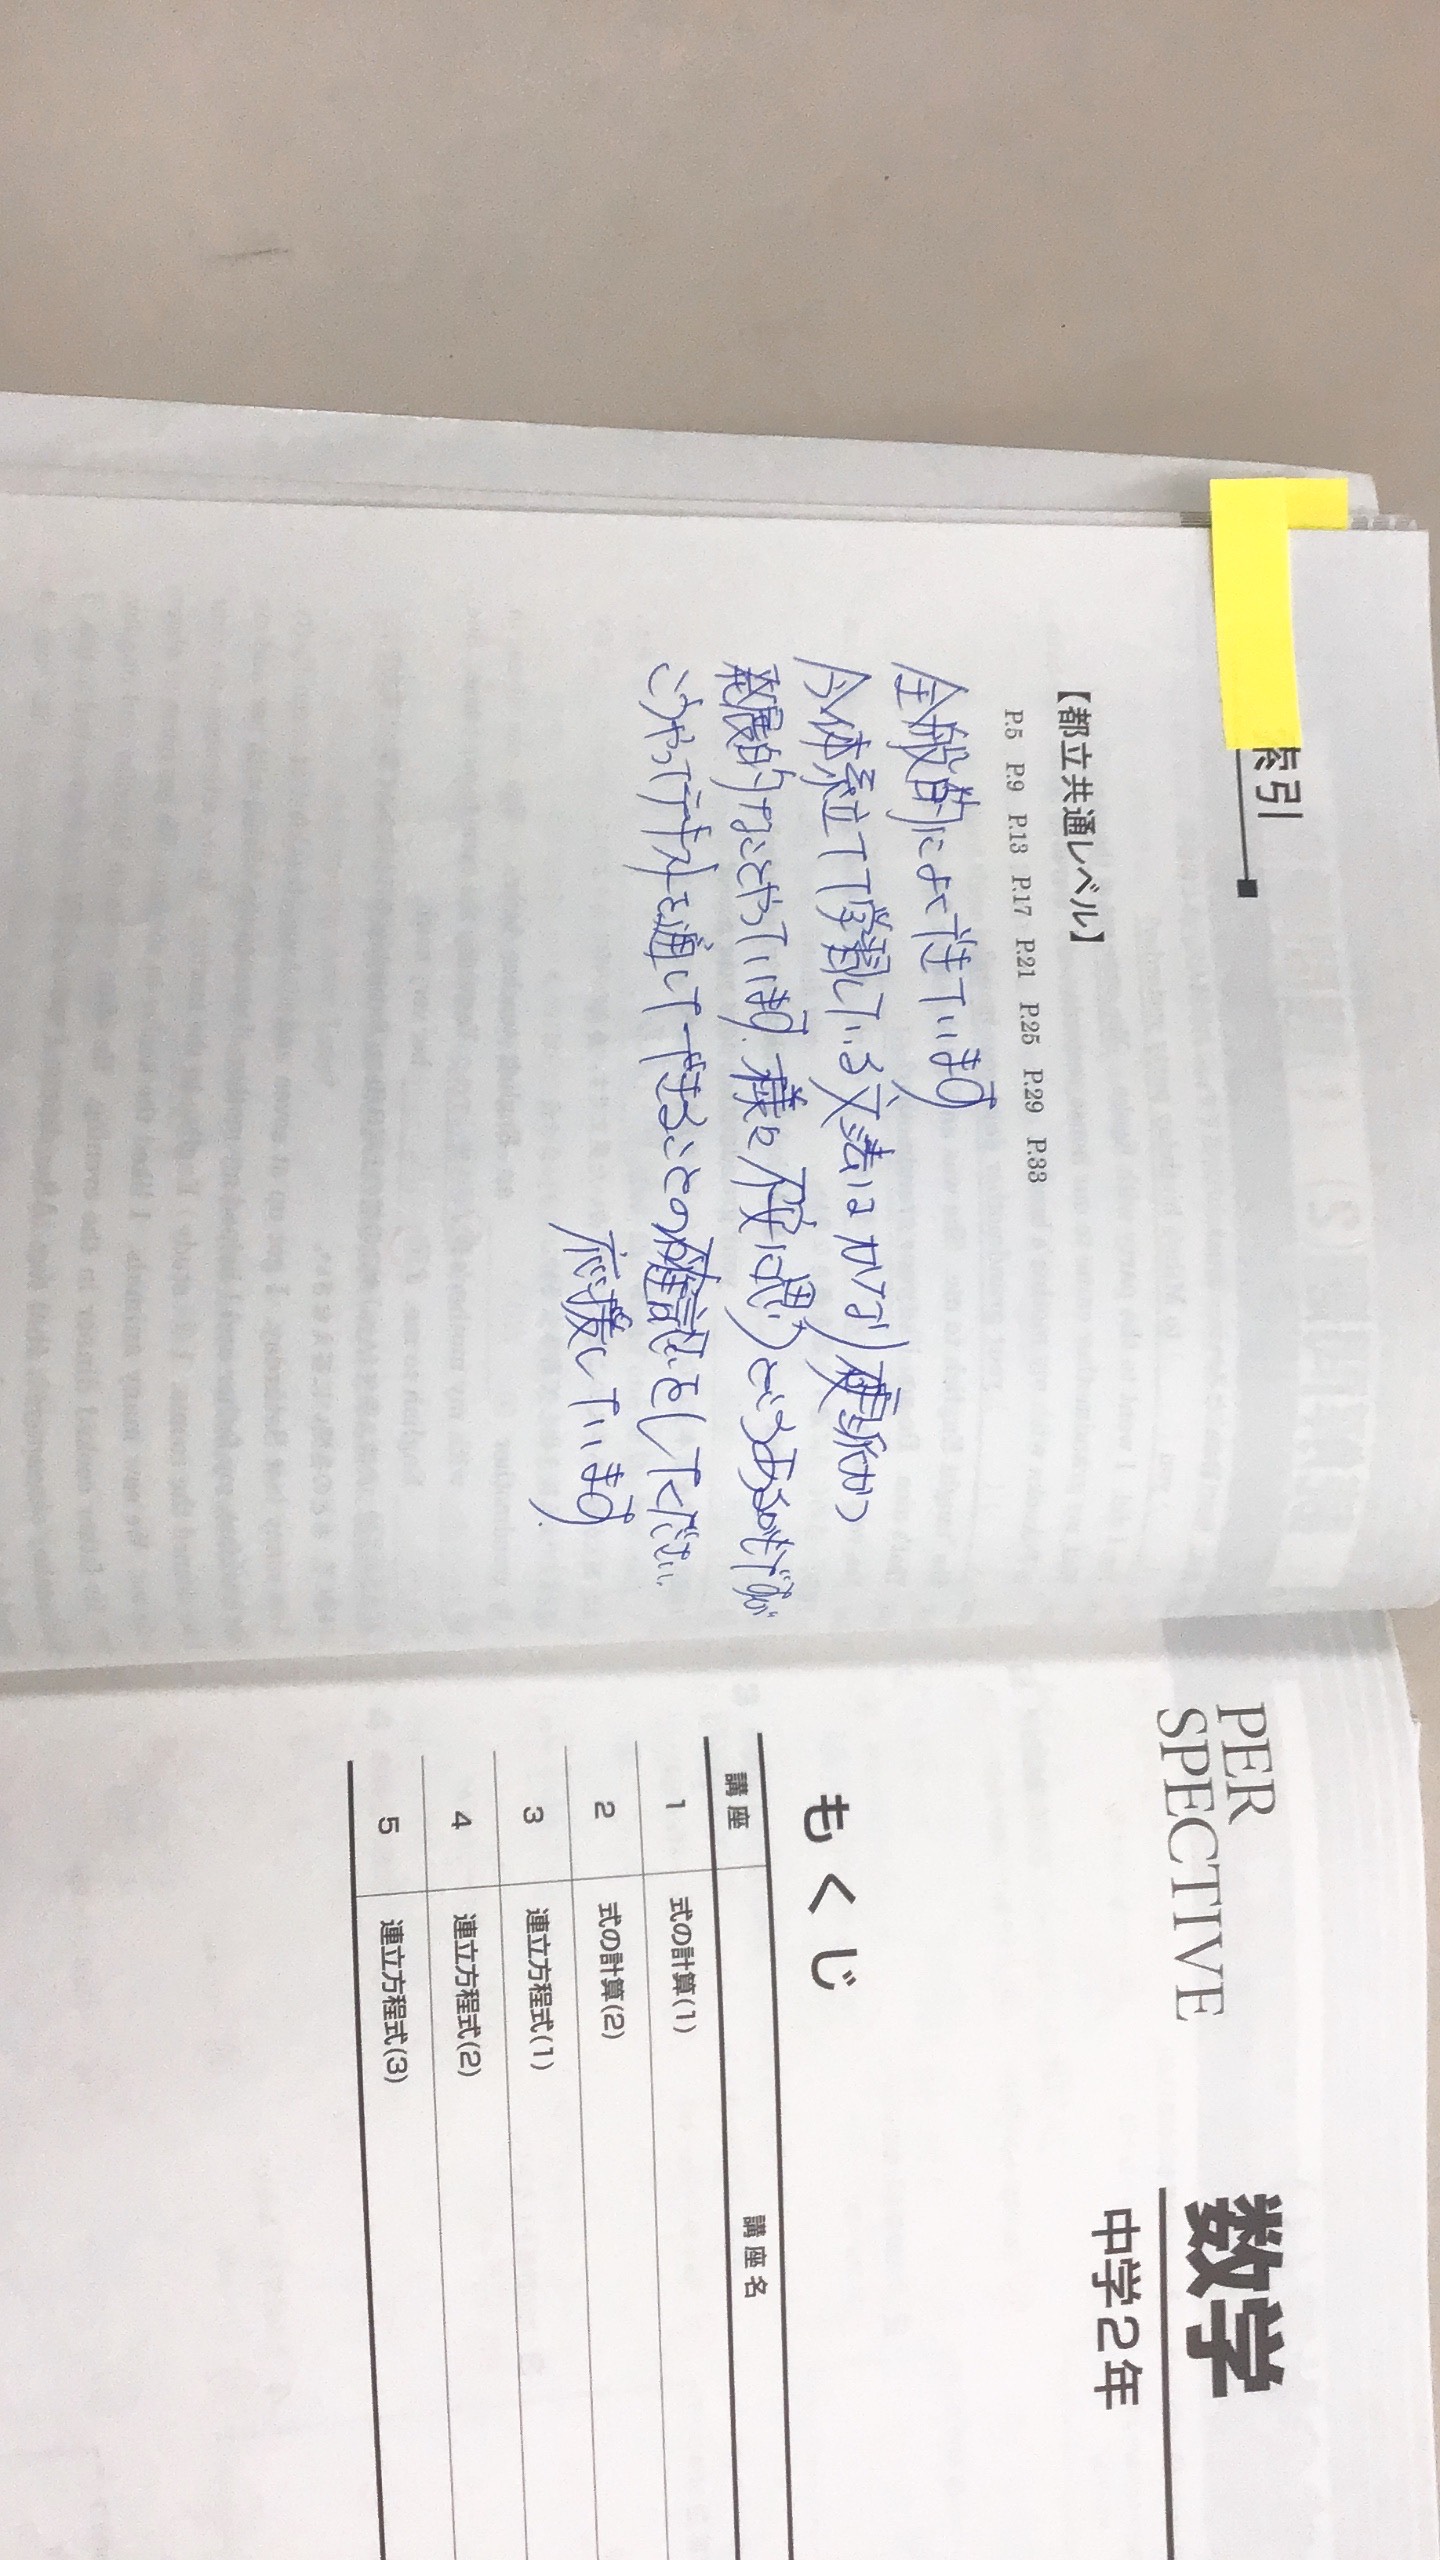 索引
【都立共通レベル】
P.5 P.9 P.13 P.17 P.21 P.25 P.29 P.33
全般的によくできています
今体系立てて学習している文法はかなり要素かつ
発展的なことやっています。様々不安に思うところあるかもですが
こうやってテキストを通してできることの確認をしてください。
応援しています。
PER
SPECTIVE
数学
中学2年
もくじ
講座 講座名
1 式の計算(1)
2 式の計算(2)
3 連立方程式(1)
4 連立方程式(2)
5 連立方程式(3)